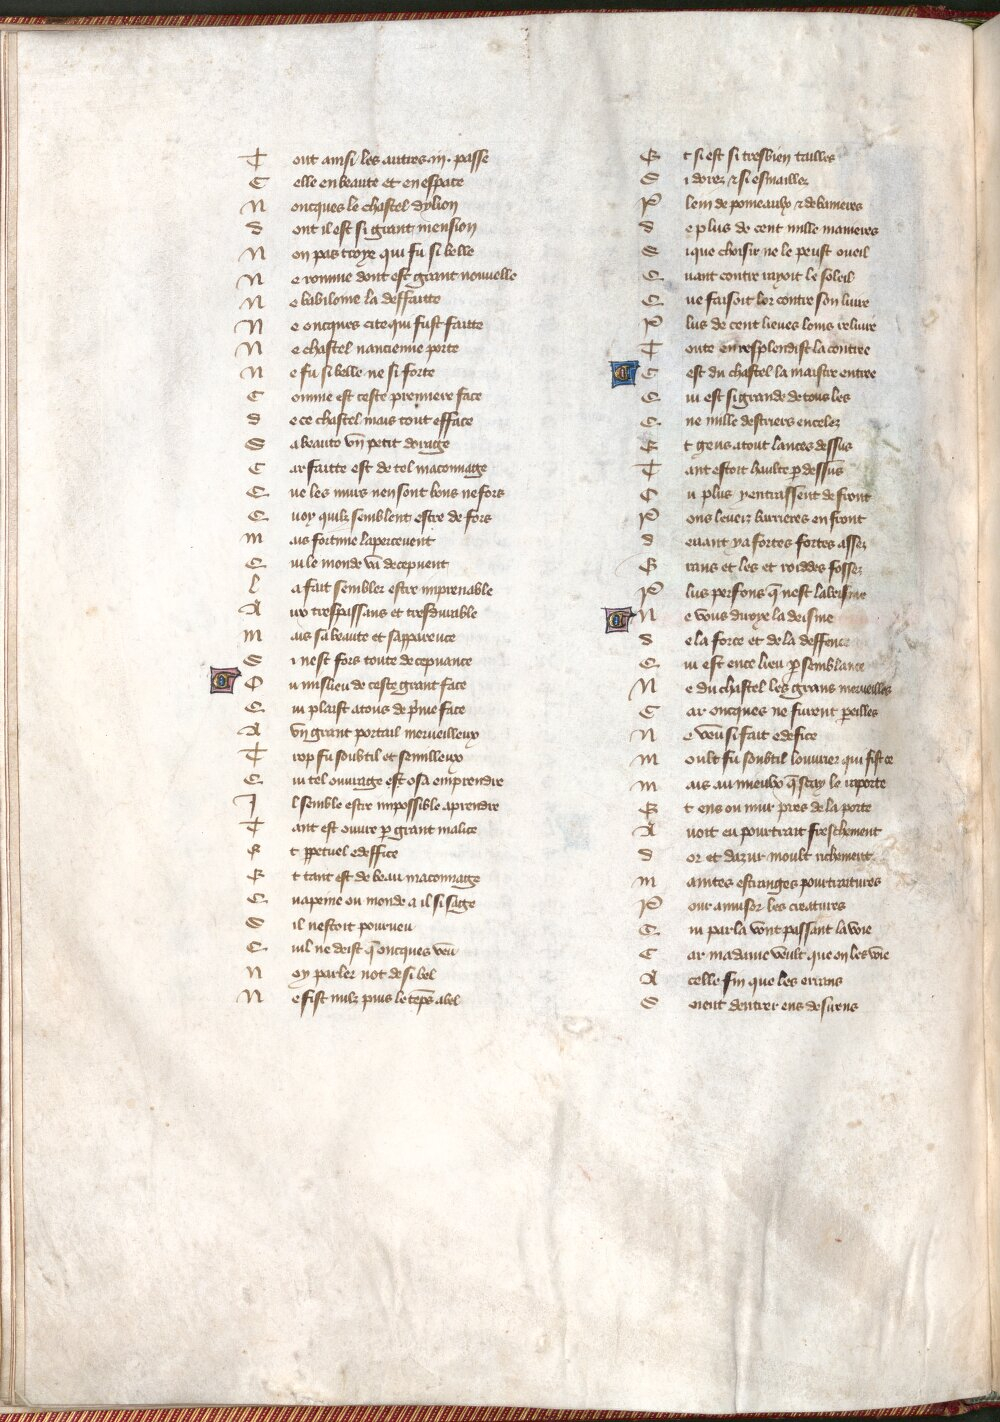 Tout ainsi les autres .iii. passe
Celle en beaute et en espace
Noncques le chastel dylion
Dont il est si grant mension
Non pas troye qui fu si belle
Ne romme dont est grant nouuelle
Ne babilonne la deffaitte
Ne oncques cite qui fust faitte
Ne chastel nancienne porte
Ne fu si belle ne si forte
Comme est ceste premiere face
De ce chastel mais tout efface
Sa beaute vn petit dorage
Car faitte est de tel maconnage
Que les murs nen sont bons ne fors
Quoy quilz semblent estre de fors
Mais fortune laperceuent
Qui le monde va deceuuent
La fait sembler estre imprenable
Aux trespassans et tresdurable
Mais sa beaute et sapparence
Si nest fors toute deceuuance
Ou milieu de ceste grant face
Qui plaist a tous de pme face
A vn grant portail merueilleux
Trop fu soubtil et semilleux
Qui tel ouurage est osa emprendre
Il semble estre impossible aprendre
Tant est ouure p grant malice
Et ppetuel edeffice
Et tant est de beau maconnage
Qua peine ou monde a il si sage
Sil nestoit pourueu
Quil ne deist q oncques veu
Noy parler not de si bel
Ne fist nulz puis le teps abel
Et si est si tresbien tailles
Si dorez & si esmaillez
Plein de pomeaulx & de banieres
De plus de cent mille manieres
Si que choisir ne le peust oueil
Quant contre rayoit le soleil
Que faisoit lor contre son luire
Plus de cent lieues loins reluire
Toute en resplendist la contree
Cest du chastel la maistre entree
Qui est si grande de tous les
Que mille destriers encelez
Et gens atout lances dessus
Tant estoit haulte p dessus
Ou plus y entrassent de front
Pons leueiz barrieres en front
Deuant y a fortes fortes assez
Grans et les et roiddes fossez
Plus perfons q nest labeisme
Ne vous diroye la deisme
De la force et de la deffence
Qui est en ce lieu p semblance
Ne du chastel les grans merueilles
Car oncques ne furent peilles
Ne veu si fait edefice
Moult fu soubtil louurier qui fist ce
Mais au mieulx q scay le raporte
Et ens ou mur pres de la porte
Auoit eu pourtrait freschement
Dor et dazur moult richement
Maintes estranges pourtraitures
Pour amuser les creatures
Qui par la vont passant la voie
Car madame veult que on les voie
A celle fin que les errans
Soient dentrer ens desirens